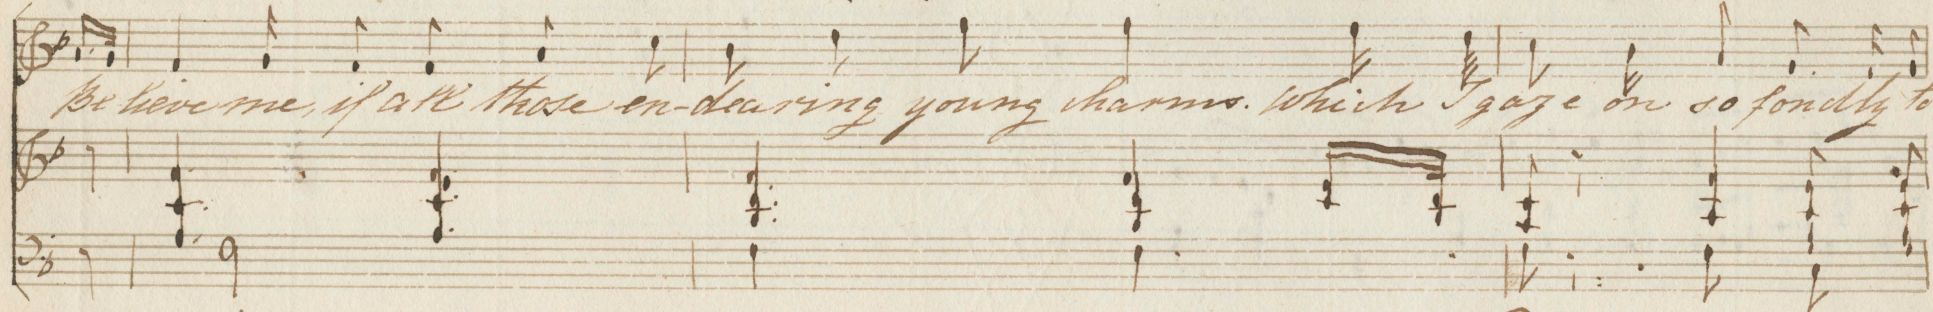 Be lieve me, if all those en-dearing young charms. which I gaze on so fondly to